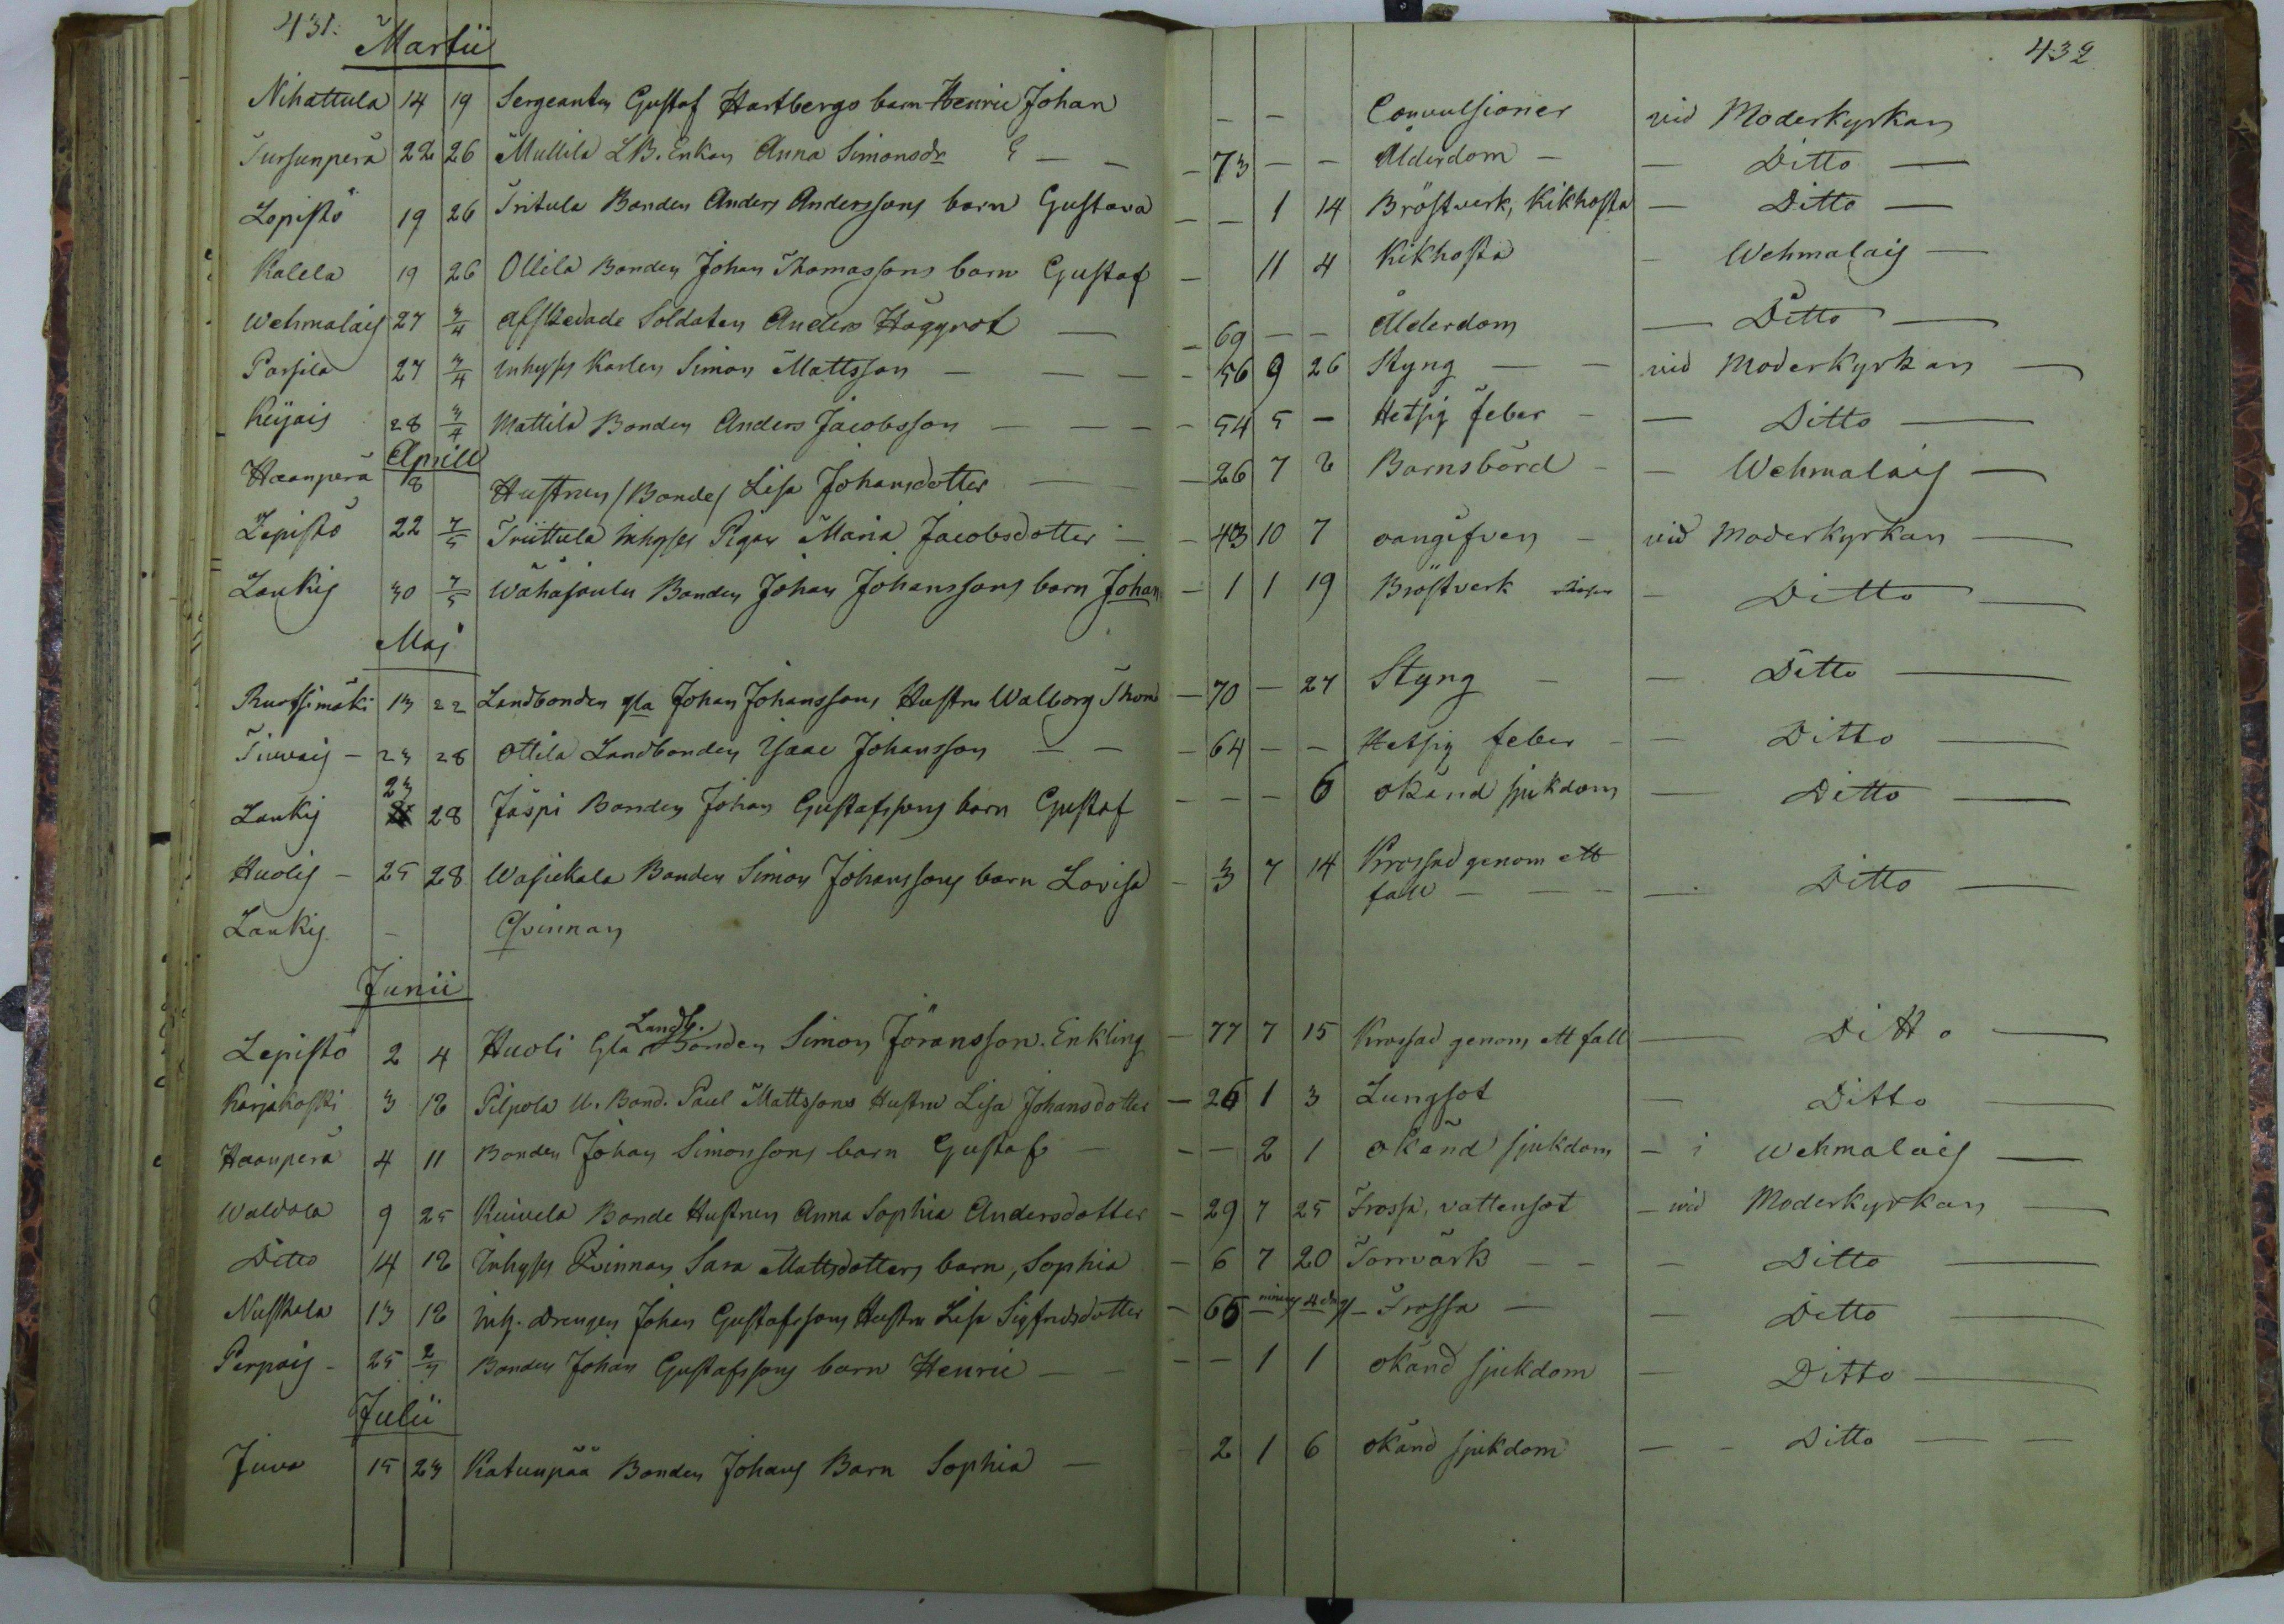 431.
432
Martii
Nihattula 14 19 Sergeanten Gustaf Hartbergs barn Henric Johan - - Convulsioner vid Moderkyrkan
Tursunperä 22 26 Mullila LB. Enkan Anna Simonsdr E - - - 73 - - Ålderdom - - Ditto -
Lepistö 19 26 Tritula Bonden Anders Anderssons barn Gustava - - 1 14 Bröstverk, Kikhosta - Ditto -
Kalela 19 26 Ollila Bonden Johan Thomassons barn Gustaf - 11 4 Kikhosta - Wehmalais -
Wehmalais 27 3/4 afskedade Soldaten Anders Häggrot - - 69 - - Ålderdom - Ditto -
Parsila 27 3/4 inhyses Karlen Simon Mattsson - - - - 56 9 26 Styng - - vid Moderkyrkan -
Keijais 28 3/4 Mattila Bonden Anders Jacobsson - - - - 54 5 - Hetsig feber - - Ditto -
Aprill
Haanperä 18 Hustrun /Bonde/ Lisa Johansdotter - - - 26 7 2 Barnsbörd - - Wehmalais -
Lepistö 22 7/5 Triittula inhyses Pigan Maria Jacobsdotter - - 43 10 7 oangifven - vid Moderkyrkan -
Laukis 30 7/5 Wähäjoulu Bonden Johan Johanssons barn Johan - 1 1 19 Bröstverk - Ditto -
Maj
Ruossimäki 13 22 Landbonden gla Johan Johanssons Hustru Walborg Thom - 70 - 27 Styng - - Ditto -
23 28 Ollila Landbonden Isaac Johansson - - - 64 - - Hetsig feber - - Ditto -
Laukis 23 28 Jäspi Bonden Johan Gustafssons barn Gustaf - - - 6 okänd sjukdom - Ditto -
Huolis - 25 28 Wasiekala Bonden Simon Johanssons barn Lovisa - 3 7 14 Krossad genom ett
fall - - - - Ditto -
Laukis - Qvinnan
Junii
Lepistö 2 4 Huoli Gla Landb. Bonden Simon Jöransson. Enkling - 77 7 15 Krossad genom ett fall - Ditto -
Karjakoski 3 18 Pilpola U. Bond. Paul Mattssons Hustru Lisa Johansdotter - 26 1 3 Lungsot - Ditto -
Haanperä 4 11 Bonden Johan Simonsons barn Gustaf - - - 2 1 okänd sjukdom - i Wehmalais -
Waldola 9 25 Kuivela Bonde Hustrun Anna Sophia Andersdotter - 29 7 25 Frossa, vattensot - vid Moderkyrkan -
Ditto 14 18 Inhyses Qvinnan Sara Mattsdotters barn, Sophia - 6 7 20 Torrvärk - - - Ditto -
Nuskala 13 18 Inh. Drengen Johan Gustafssons Hustru Lisa Sigfridsdotter - 66 Frossa - - Ditto -
Perpais - 25 2/7 Bonden Johan Gustafssons barn Henric - - - - 1 1 okänd sjukdom - Ditto -
Julii
Juva 15 23 Katunpää Bonden Johans Barn Sophia - 2 1 6 okänd sjukdom - - Ditto - -